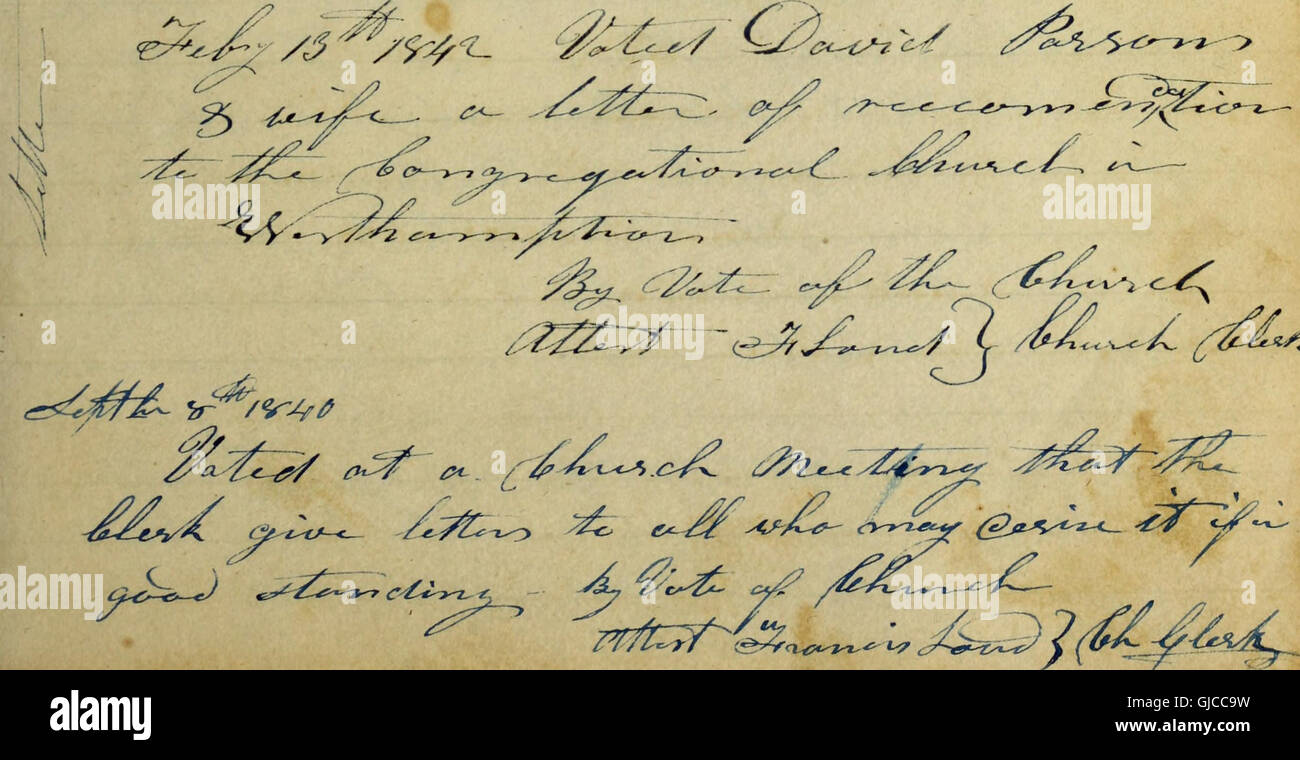 Feby 13th 1842 Voted David Parsons
& wife a letter of reecomendation
to the Congregational Church in
Westhamption
By Vote of the Church
Attest F Loud } Church Clerk
Septbr 8th 1840
Voted at a Church Meeting that the
Clerk give letters to all who may desire it if in
good standing - By Vote of Church
Attest Francis Loud } Ch Clerk
alamy
alamy
Image ID: GJCC9W
www.alamy.com